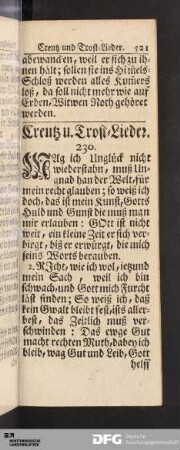 Creutz und Trost-Lieder. 521
abewancken, weil er sich zu ih-
nen hält; sollen sie ins Him̄els-
Schloß werden alles Kum̄ers
loß, da soll nicht mehr wie auf
Erden, Witwen Noth gehöret
werden.
Creutz u. Trost-Lieder.
230.
MAg ich Unglück nicht
wiederstahn, muß Un-
gnad han der Welt, für
mein recht glauben; so weiß ich
doch, das ist mein Kunst, Gotts
Huld und Gunst die muß man
mir erlauben: GOtt ist nicht
weit, ein kleine Zeit er sich ver-
birgt, biß er erwürgt, die mich
seins Worts berauben.
2. RJcht, wie ich wol, jetzund
mein Sach, weil ich bin
schwach, und Gott mich Furcht
läst finden; So weiß ich, daß
kein Gwalt bleibt fest, ists aller-
best, das Zeitlich muß ver-
schwinden: Das ewge Gut
macht rechten Muth, dabey ich
bleib, wag Gut und Leib, Gott
helff
DFG Deutsche
Forschungsgemeinschaft